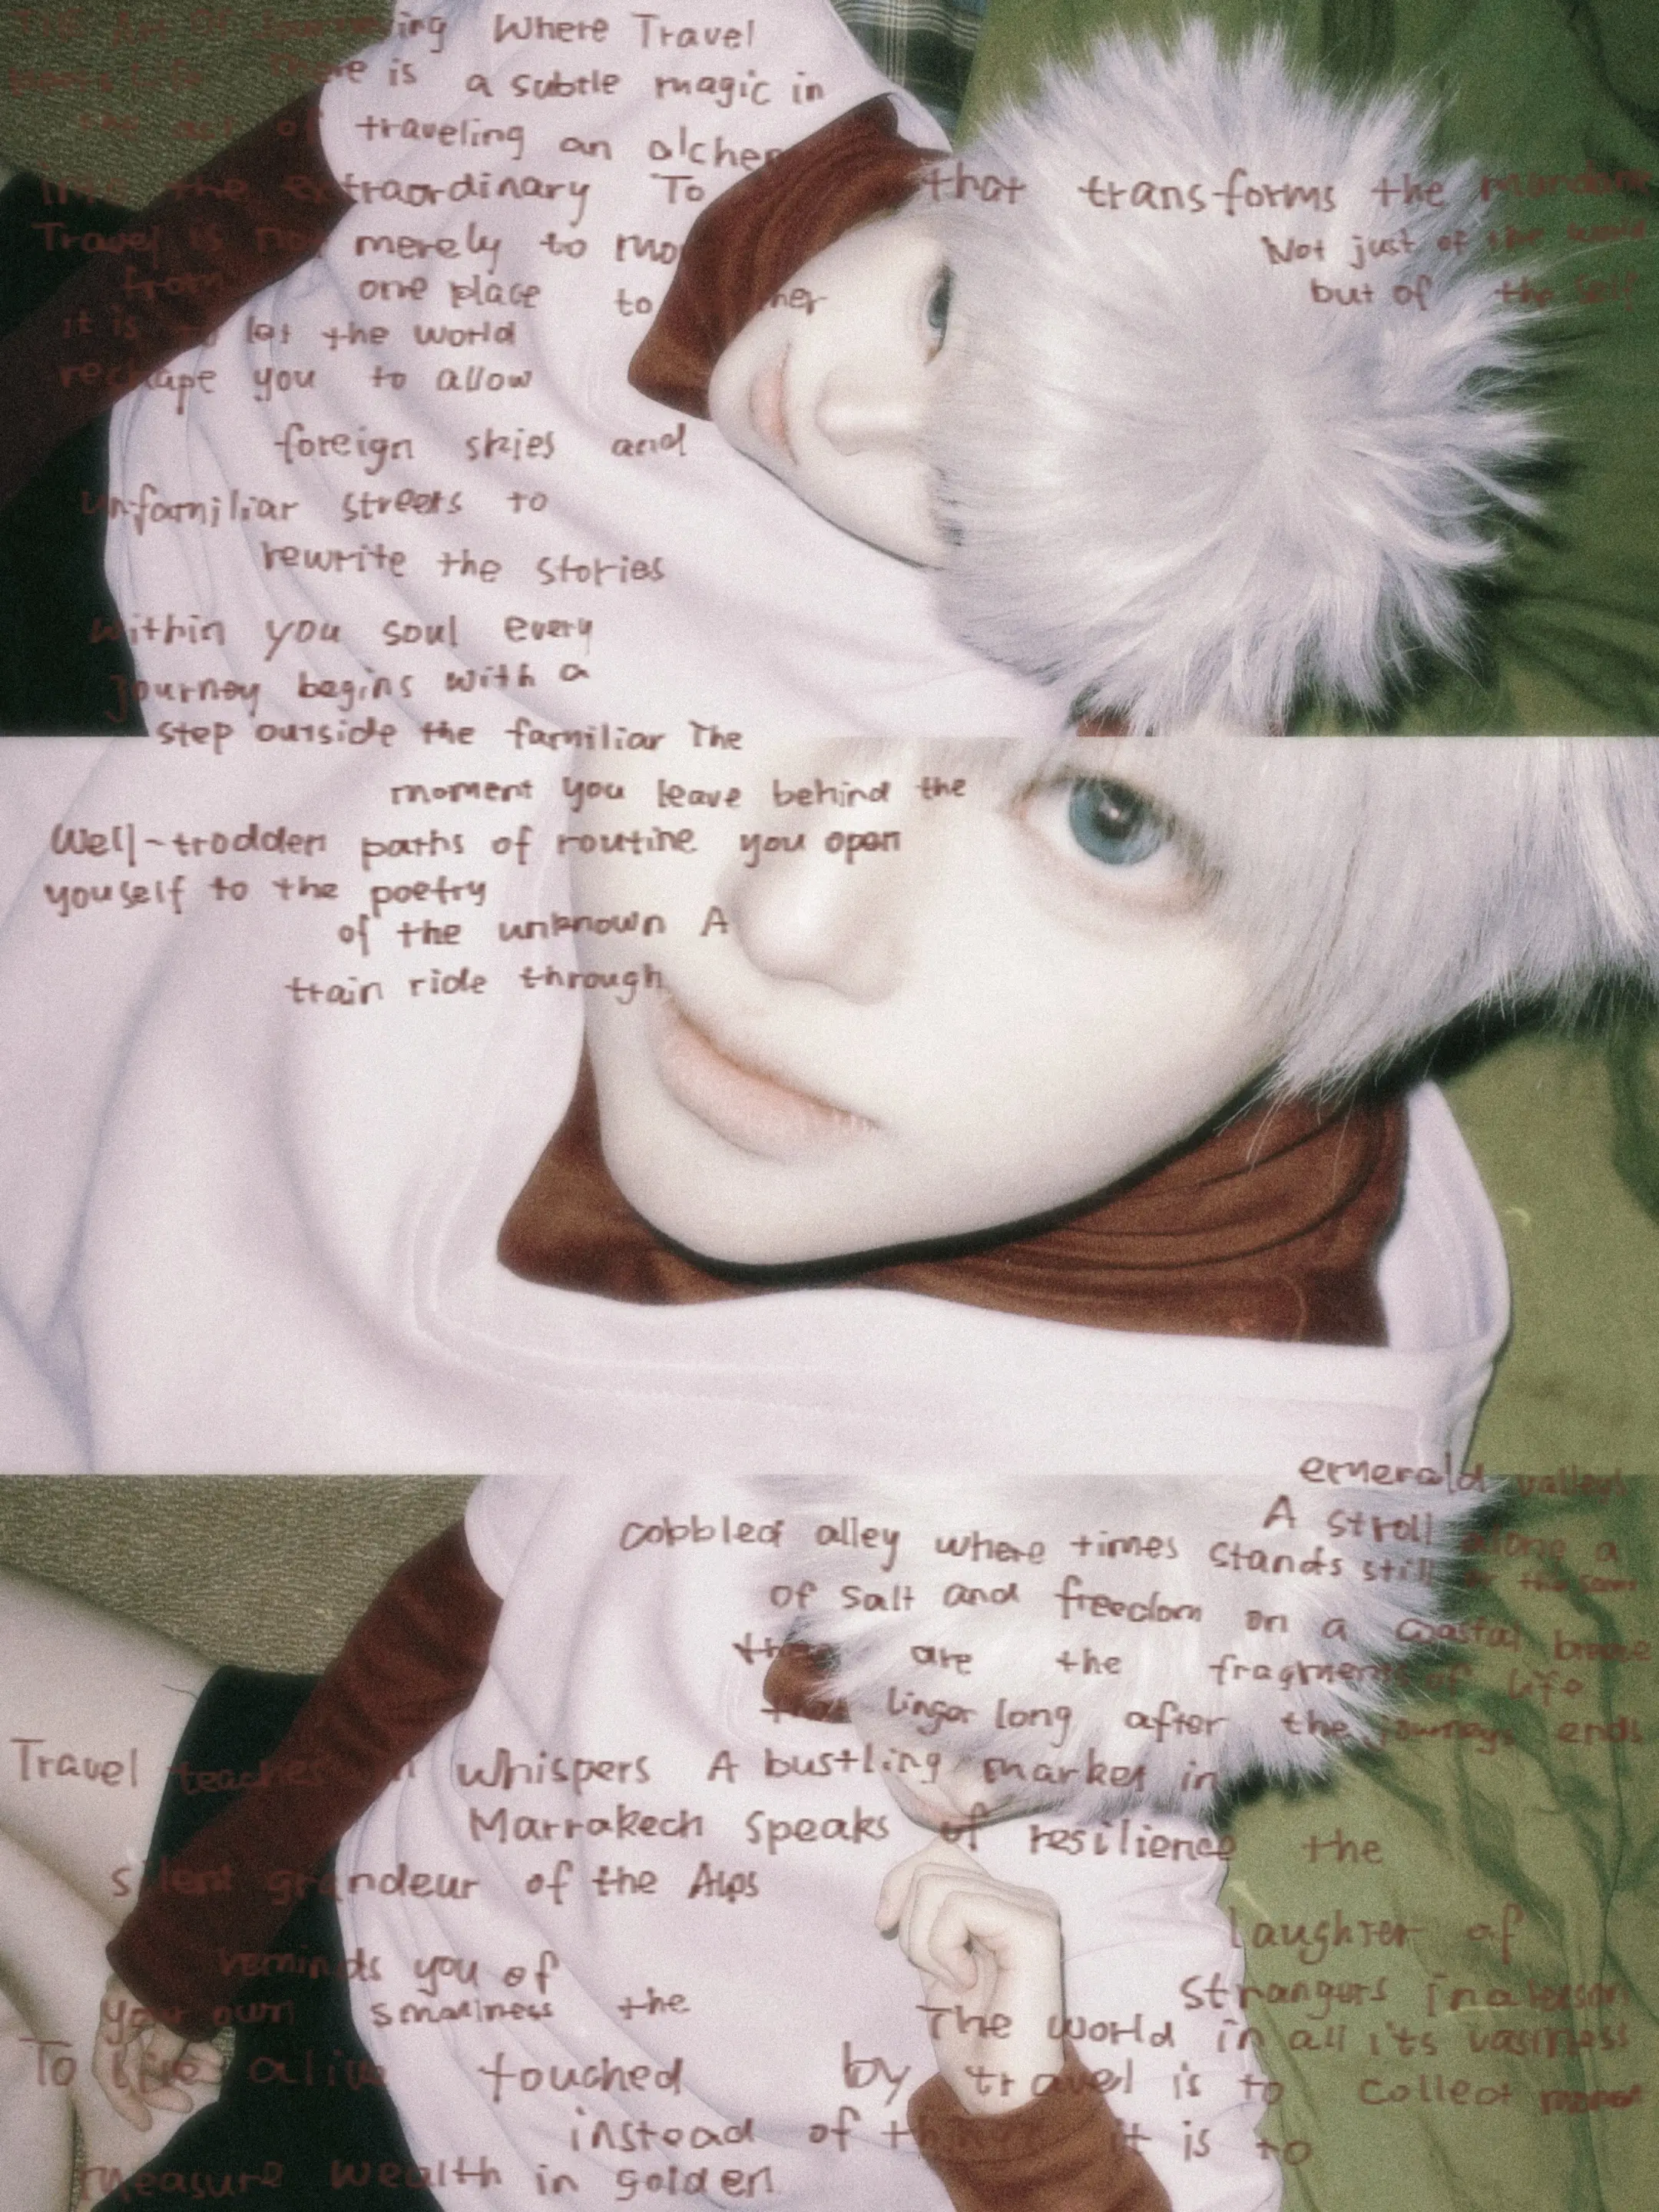 THE Art Of Journeying Where Travel
There is a subtle magic in
the act of traveling an alchem
that transforms the mundane
into the extraordinary To
Not just of the world
Travel is not merely to mo
but of the self
from one place to
it is to let the world
reshape you to allow
foreign skies and
unfamiliar streets to
rewrite the stories
within you soul every
journey begins with a
step outside the familiar The
moment you leave behind the
Well-trodden paths of routine you open
youself to the poetry
of the unknown A
train ride through
emerald valleys
A stroll along a
cobbled alley where times stands still
of salt and freedom on a coastal breeze
are the fragments of life
that linger long after the journeys ends
Travel teaches in whispers A bustling market in
Marrakech speaks of resilience the
silent grandeur of the Alps
laughter of
reminds you of
strangers in a
your own smallness the
The world in all its vastness
To alive touched by travel is to collect
instead of things it is to
measure wealth in golden